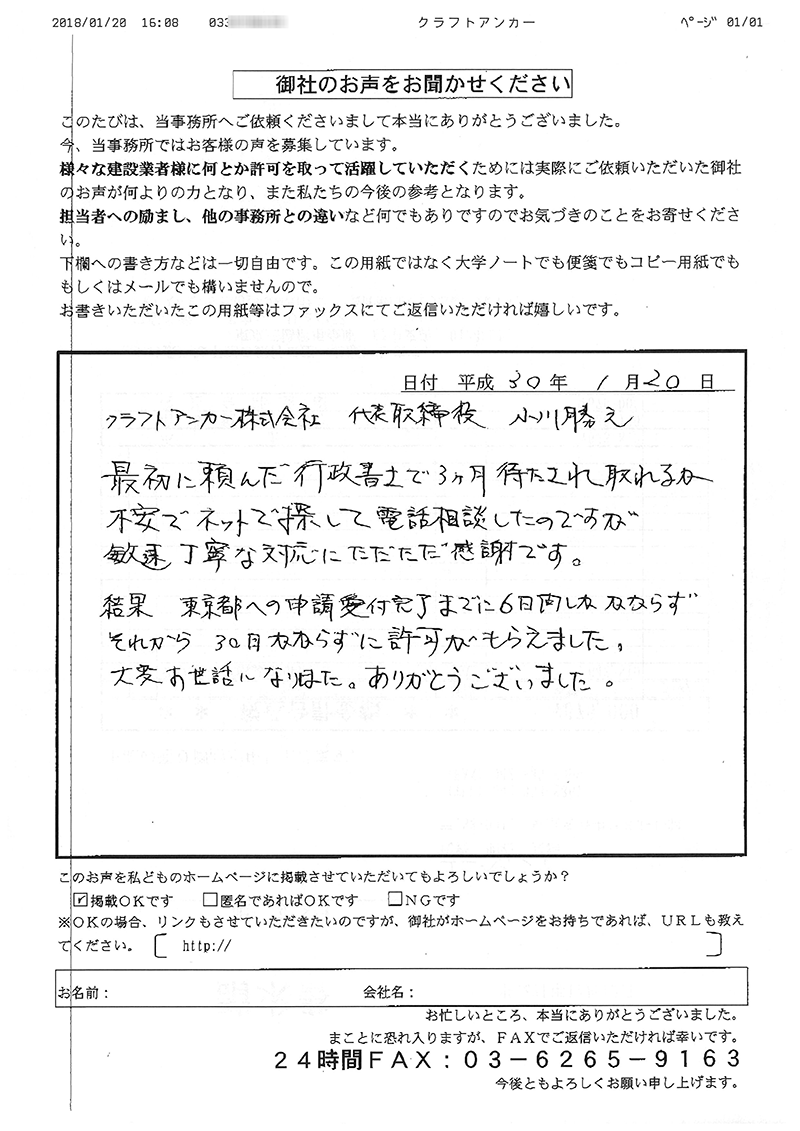 2018/01/20 16:08 033 クラフトアンカー ﾍﾟｰｼﾞ 01/01
御社のお声をお聞かせください
このたびは、当事務所へご依頼くださいまして本当にありがとうございました。
今、当事務所ではお客様の声を募集しています。
様々な建設業者様に何とか許可を取って活躍していただくためには実際にご依頼いただいた御社
のお声が何よりの力となり、また私たちの今後の参考となります。
担当者への励まし、他の事務所との違いなど何でもありですのでお気づきのことをお寄せくださ
い。
下欄への書き方などは一切自由です。この用紙ではなく大学ノートでも便箋でもコピー用紙でも
もしくはメールでも構いませんので。
お書きいただいたこの用紙等はファックスにてご返信いただければ嬉しいです。
日付 平成 30 年 1 月 20 日
クラフトアンカー株式会社 代表取締役 小川勝之
最初に頼んだ行政書士で3ヶ月待たされ取れるか
不安でネットで探して電話相談したのですが
敏速丁寧な対応にただただ感謝です。
結果 東京都への申請受付完了までに6日間しかかからず
それから 30日かからずに許可がもらえました。
大変お世話になりました。ありがとうございました。
このお声を私どものホームページに掲載させていただいてもよろしいでしょうか？
☑掲載ＯＫです □匿名であればＯＫです □ＮＧです
※ＯＫの場合、リンクもさせていただきたいのですが、御社がホームページをお持ちであれば、ＵＲＬも教え
てください。〔 http:// 〕
お名前： 会社名：
お忙しいところ、本当にありがとうございました。
まことに恐れ入りますが、ＦＡＸでご返信いただければ幸いです。
２４時間ＦＡＸ：０３－６２６５－９１６３
今後ともよろしくお願い申し上げます。